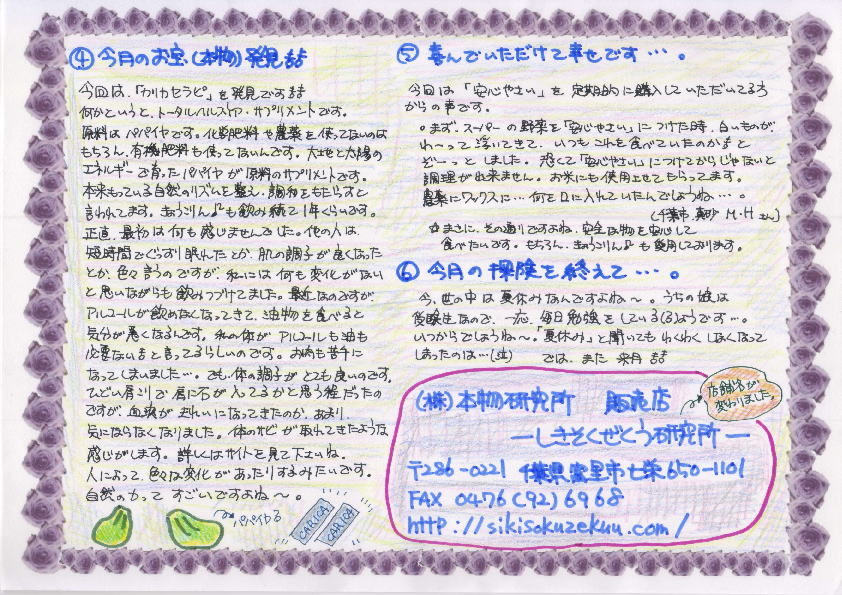 ④ 今月のお宝(本物)発見!!
今回は、「カリカセラピ」を発見です!!
何かというと、トータルヘルスケア・サプリメントです。
原料はパパイヤです。化学肥料や農薬を使ってないのは
もちろん、有機肥料も使ってないんです。大地と太陽の
エネルギーで育ったパパイヤが原料のサプリメントです。
本来もっている自然のリズムを整え、調和をもたらすと
言われてます。きゅうりん♪も飲み続て1年くらいです。
正直、最初は何も感じませんでした。他の人は
短時間でぐっすり眠れたとか、肌の調子が良くなった
とか、色々言うのですが、私には何も変化がない
と思いながらも飲みつづけてました。最近なのですが、
アルコールが飲めなくなってきて、油物を食べると
気分が悪くなるんです。私の体がアルコールも油も
必要ないよと言ってるらしいのです。お肉も苦手に
なってしまいました…。でも体の調子がとても良いのです。
ひどい肩こりで肩に石が入ってるかと思う程だったの
ですが、血液がきれいになってきたのか、あまり
気にならなくなりました。体のサビが取れてきたような
感じがします。詳しくはサイトを見て下さいね。
人によって、色々な変化があったりするみたいです。
自然の力って すごいですよね～。
パパイヤ
CARICA
CARICA
⑤ 喜んでいただけて幸せです…。
今回は「安心やさい」を定期的に購入していただいてる方
からの声です。
。まず、スーパーの野菜を「安心やさい」につけた時、白いものが、
わ～って浮いてきて、いつもこれを食べていたのか!!と
ぞーっとしました。恐くて「安心やさい」につけてからじゃないと
調理が出来ません。お米にも使用させてもらってます。
農薬にワックスに…何を口に入れていたんでしょうね…。
(千葉市 真砂 M・Hさん)
☆まさに、その通りですよね。安全な物を安心して
食べたいです。もちろん、きゅうりん♪も愛用しております。
⑥ 今月の探険を終えて…。
今、世の中は夏休みなんですよね～。うちの娘は
受験生なので、一応、毎日勉強をしている(?)ようです…。
いつからでしょうね～。「夏休み」と聞いてもわくわくしなくなって
しまったのは…(泣) では、また 来月!!
店舗名が
変わりました。
(株)本物研究所 販売店
ーしきそくぜくう研究所ー
〒286-0221 千葉県富里市七栄650-1101
FAX 0476(92)6968
http://sikisokuzekuu.com/